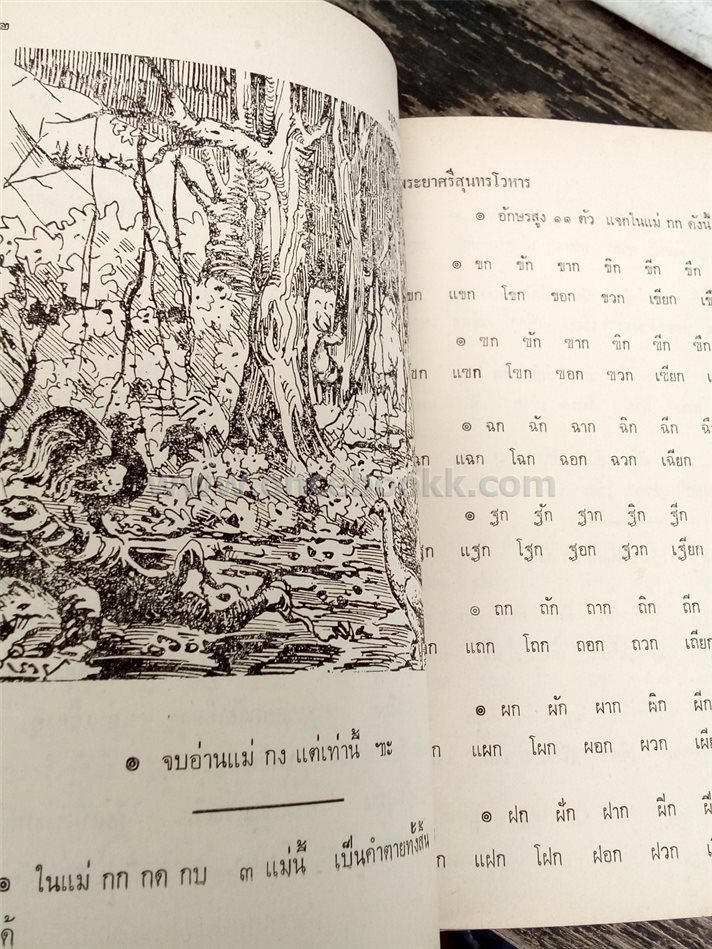 ๏ จบอ่านแม่ กง แต่เท่านี้ ฯะ
๏ ในแม่ กก กด กบ ๓ แม่นี้ เป็นคำตายทั้งสิ้น
พระยาศรีสุนทรโวหาร
๏ อักษรสูง ๑๑ ตัว แจกในแม่ กก ดังนี้
๏ ขก ขัก ขาก ขิก ขีก ขึก
แขก โขก ขอก ขวก เขียก
๏ ฃก ฃัก ฃาก ฃิก ฃีก ฃึก
แฃก โฃก ฃอก ฃวก เฃียก
๏ ฉก ฉัก ฉาก ฉิก ฉีก
แฉก โฉก ฉอก ฉวก เฉียก
๏ ฐก ฐัก ฐาก ฐิก ฐีก
แฐก โฐก ฐอก ฐวก เฐียก
๏ ถก ถัก ถาก ถิก ถีก
แถก โถก ถอก ถวก เถียก
๏ ผก ผัก ผาก ผิก ผีก
แผก โผก ผอก ผวก
๏ ฝก ฝัก ฝาก ฝิก
แฝก โฝก ฝอก ฝวก